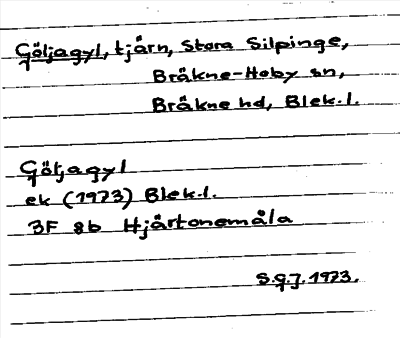 Göljagyl, tjärn, Stora Silpinge,
Bräkne-Hoby sn,
Bräkne hd, Blek.l.
Göljagyl
ek (1973) Blek.l.
3F 8b Hjärtonemåla
S.G.J. 1973.